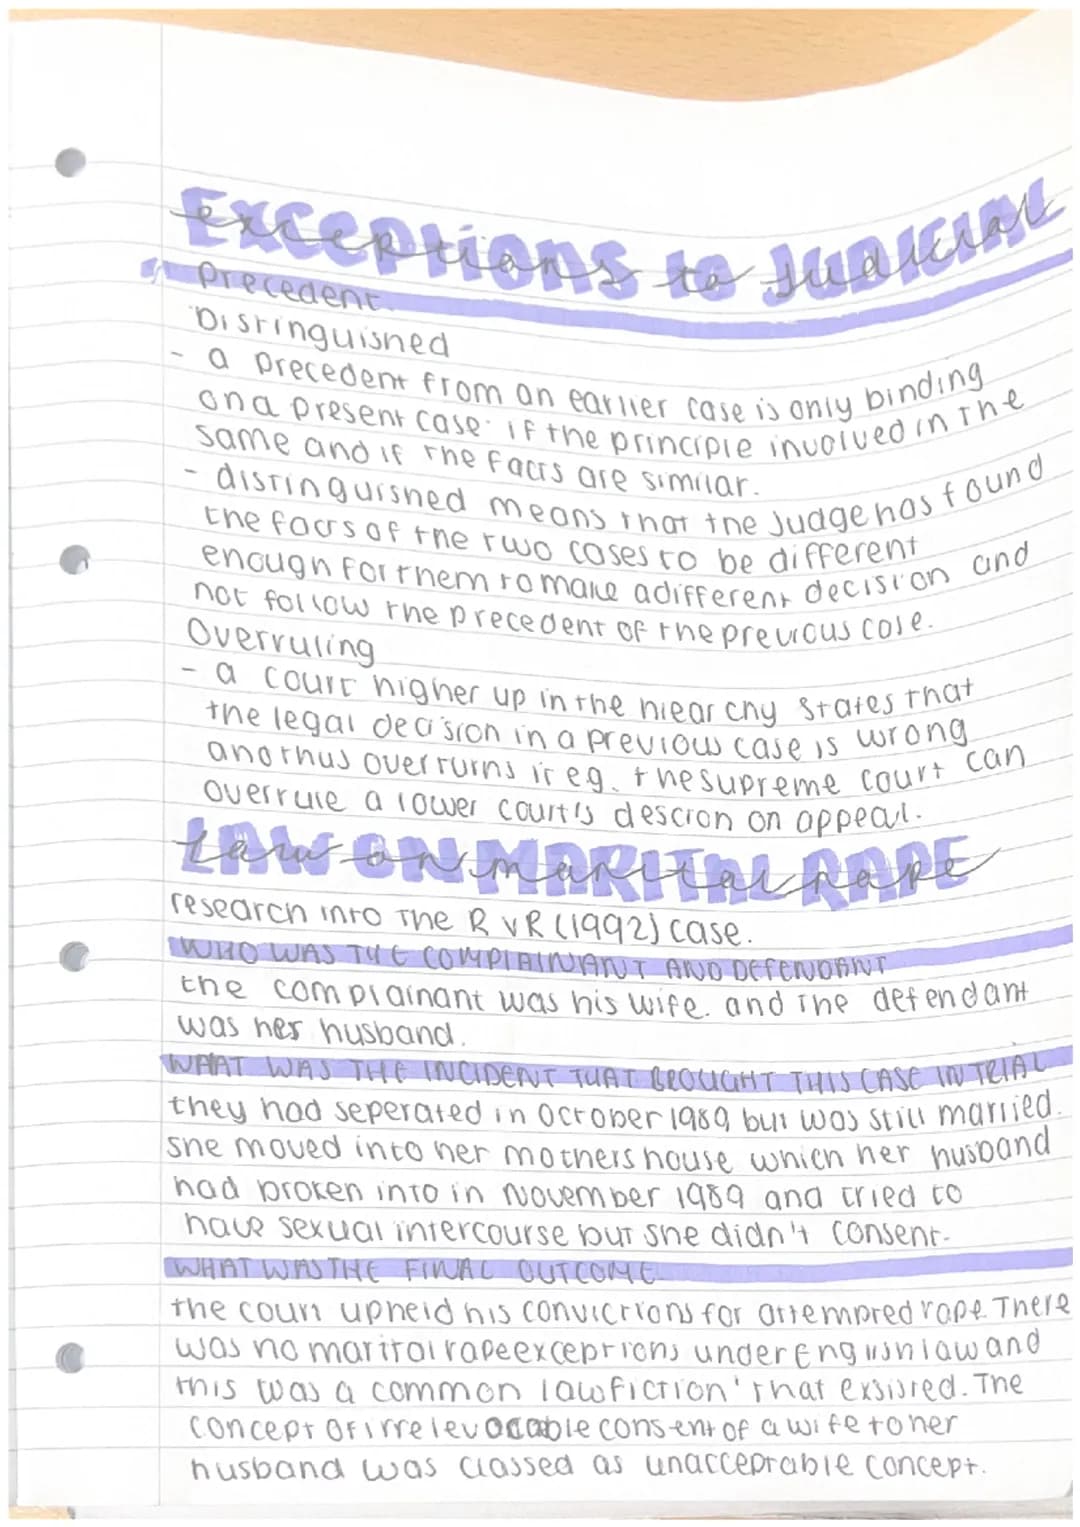 Exceptions to Judicial
precedent.
Distinguished
- a precedent from an earlier case is only binding
on a present case if the principle involved in the
same and if the facts are similar.
- distinguished means that the judge has found
the facts of the two cases to be different
enough for them to make a different decision and
not follow the precedent of the previous case.
Overruling
- a court higher up in the hiearchy states that
the legal decision in a previous case is wrong
and thus overturns it eg. the supreme court can
overrule a lower court's descion on appeal.
LAW ON MARITAL RAPE
research into the R v R (1992) case.
WHO WAS THE COMPLAINANT AND DEFENDANT
the complainant was his wife. and the defendant
was her husband.
WHAT WAS THE INCIDENT THAT BROUGHT THIS CASE IN TRIAL
they had seperated in October 1989 but was still married.
she moved into her mothers house which her husband
had broken into in November 1989 and tried to
have sexual intercourse but she didn't consent.
WHAT WAS THE FINAL OUTCOME
the court upheld his convictions for attempted rape. There
was no marital rape exceptions under English law and
this was a common law fiction' that exsisted. The
concept of irrelevocable consent of a wife to her
husband was classed as unacceptable concept.